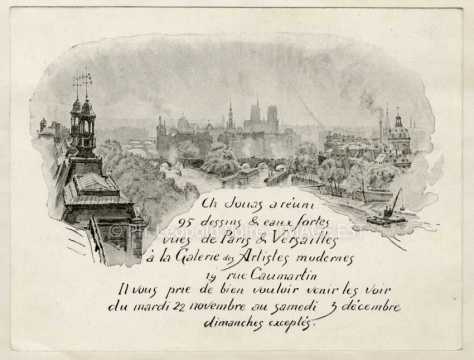 Ch Jouas a réuni
95 dessins & eaux fortes
vues de Paris & Versailles
à la Galerie des Artistes modernes
19 rue Caumartin
Il vous prie de bien vouloir venir les voir
du mardi 22 novembre au samedi 3 décembre
dimanches exceptés.